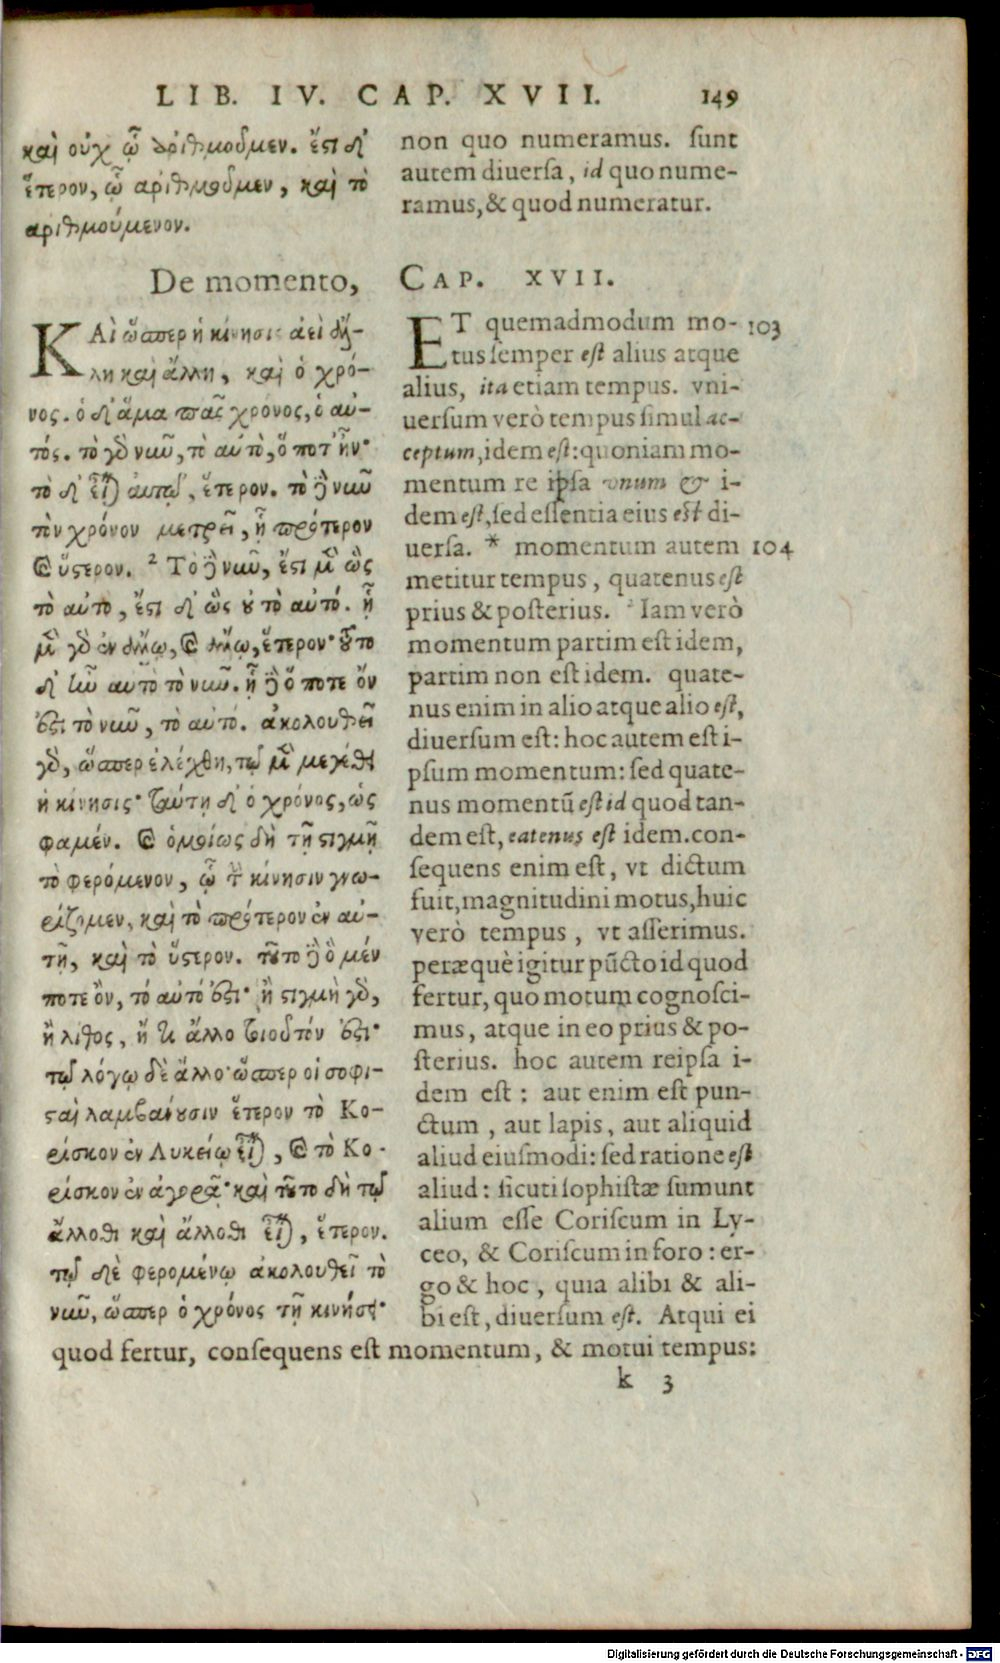 LIB. IV. CAP. XVII. 149
καὶ οὐχ ᾧ ἀριθμοῦμεν. ἔστι δ'
ἕτερον, ᾧ ἀριθμοῦμεν, καὶ τὸ
ἀριθμούμενον.
De momento,
ΚΑὶ ὥσπερ ἡ κίνησις ἀεὶ ἄλ-
λη καὶ ἄλλη, καὶ ὁ χρό-
νος. ὁ δ' ἅμα πᾶς χρόνος, ὁ αὐ-
τός. τὸ γὸ νῦν, τὸ αὐτὸ, ὅ ποτ' ἦν·
τὸ δ' εἶναι αὐτῷ, ἕτερον. τὸ δὲ νῦν
τὸν χρόνον μετρεῖ, ᾗ πρότερον
καὶ ὕστερον. ² Τὸ δὲ νῦν, ἔστι μὲν ὡς
τὸ αὐτο, ἔστι δ' ὡς οὐ τὸ αὐτό. ᾗ
μὲν γὸ ἐν ἄλλῳ, καὶ ἄλλῳ, ἕτερον· τοῦτο
δ' ἦν αὐτὸ τὸ νῦν. ᾗ δὲ ὅ ποτε ὄν
ἐστι τὸ νῦν, τὸ αὐτό. ἀκολουθεῖ
γὸ, ὥσπερ ἐλέχθη, τῷ μὲν μεγέθει
ἡ κίνησις· ταύτῃ δ' ὁ χρόνος, ὡς
φαμέν. καὶ ὁμοίως δὴ τῇ στιγμῇ
τὸ φερόμενον, ᾧ τὴν κίνησιν γνω-
ρίζομεν, καὶ τὸ πρότερον ἐν αὐ-
τῇ, καὶ τὸ ὕστερον. τοῦτο δὲ ὃ μέν
ποτε ὂν, τὸ αὐτὸ ἐστι· ἢ στιγμὴ γὸ,
ἢ λίθος, ἤ τι ἄλλο τοιοῦτόν ἐστι·
τῷ λόγῳ δὲ ἄλλο· ὥσπερ οἱ σοφι-
σταὶ λαμβάνουσιν ἕτερον τὸ Κο-
ρίσκον ἐν Λυκείῳ εἶναι, καὶ τὸ Κο-
ρίσκον ἐν ἀγορᾷ· καὶ τοῦτο δὴ τῷ
ἄλλοθι καὶ ἄλλοθι εἶναι, ἕτερον.
τῷ δὲ φερομένῳ ἀκολουθεῖ τὸ
νῦν, ὥσπερ ὁ χρόνος τῇ κινήσει·
non quo numeramus. sunt
autem diuersa, id quo nume-
ramus, & quod numeratur.
CAP. XVII.
ET quemadmodum mo- 103
tus semper est alius atque
alius, ita etiam tempus. vni-
uersum verò tempus simul ac-
ceptum, idem est: quoniam mo-
mentum re ipsa vnum & i-
dem est, sed essentia eius est di-
uersa. * momentum autem 104
metitur tempus, quatenus est
prius & posterius. ² Iam verò
momentum partim est idem,
partim non est idem. quate-
nus enim in alio atque alio est,
diuersum est: hoc autem est i-
psum momentum: sed quate-
nus momentū est id quod tan-
dem est, eatenus est idem. con-
sequens enim est, vt dictum
fuit, magnitudini motus, huic
verò tempus, vt asserimus.
peræquè igitur pūcto id quod
fertur, quo motum cognosci-
mus, atque in eo prius & po-
sterius. hoc autem reipsa i-
dem est: aut enim est pun-
ctum, aut lapis, aut aliquid
aliud eiusmodi: sed ratione est
aliud: sicuti sophistæ sumunt
alium esse Coriscum in Ly-
ceo, & Coriscum in foro: er-
go & hoc, quia alibi & ali-
bi est, diuersum est. Atqui ei
quod fertur, consequens est momentum, & motui tempus:
k 3
Digitalisierung gefördert durch die Deutsche Forschungsgemeinschaft - DFG